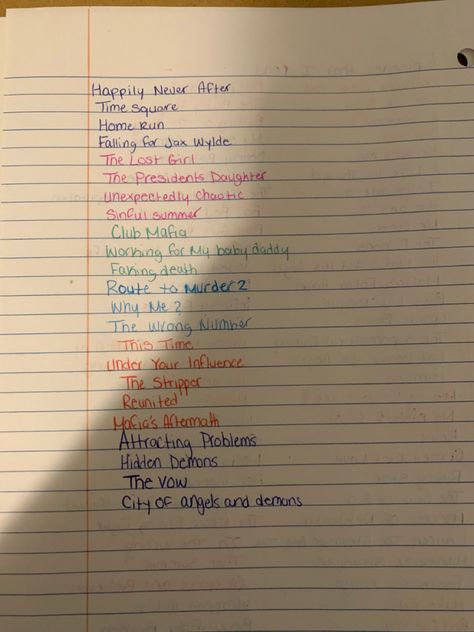 Happily Never After
Time Square
Home Run
Falling for Jax Wylde
The Lost Girl
The Presidents Daughter
Unexpectedly Chaotic
Sinful summer
Club Mafia
Working for My baby daddy
Faking death
Route to Murder 2
Why Me?
The Wrong Number
This Time
Under Your Influence
The Stripper
Reunited
Mafia's Aftermath
Attracting Problems
Hidden Demons
The Vow
City of angels and demons